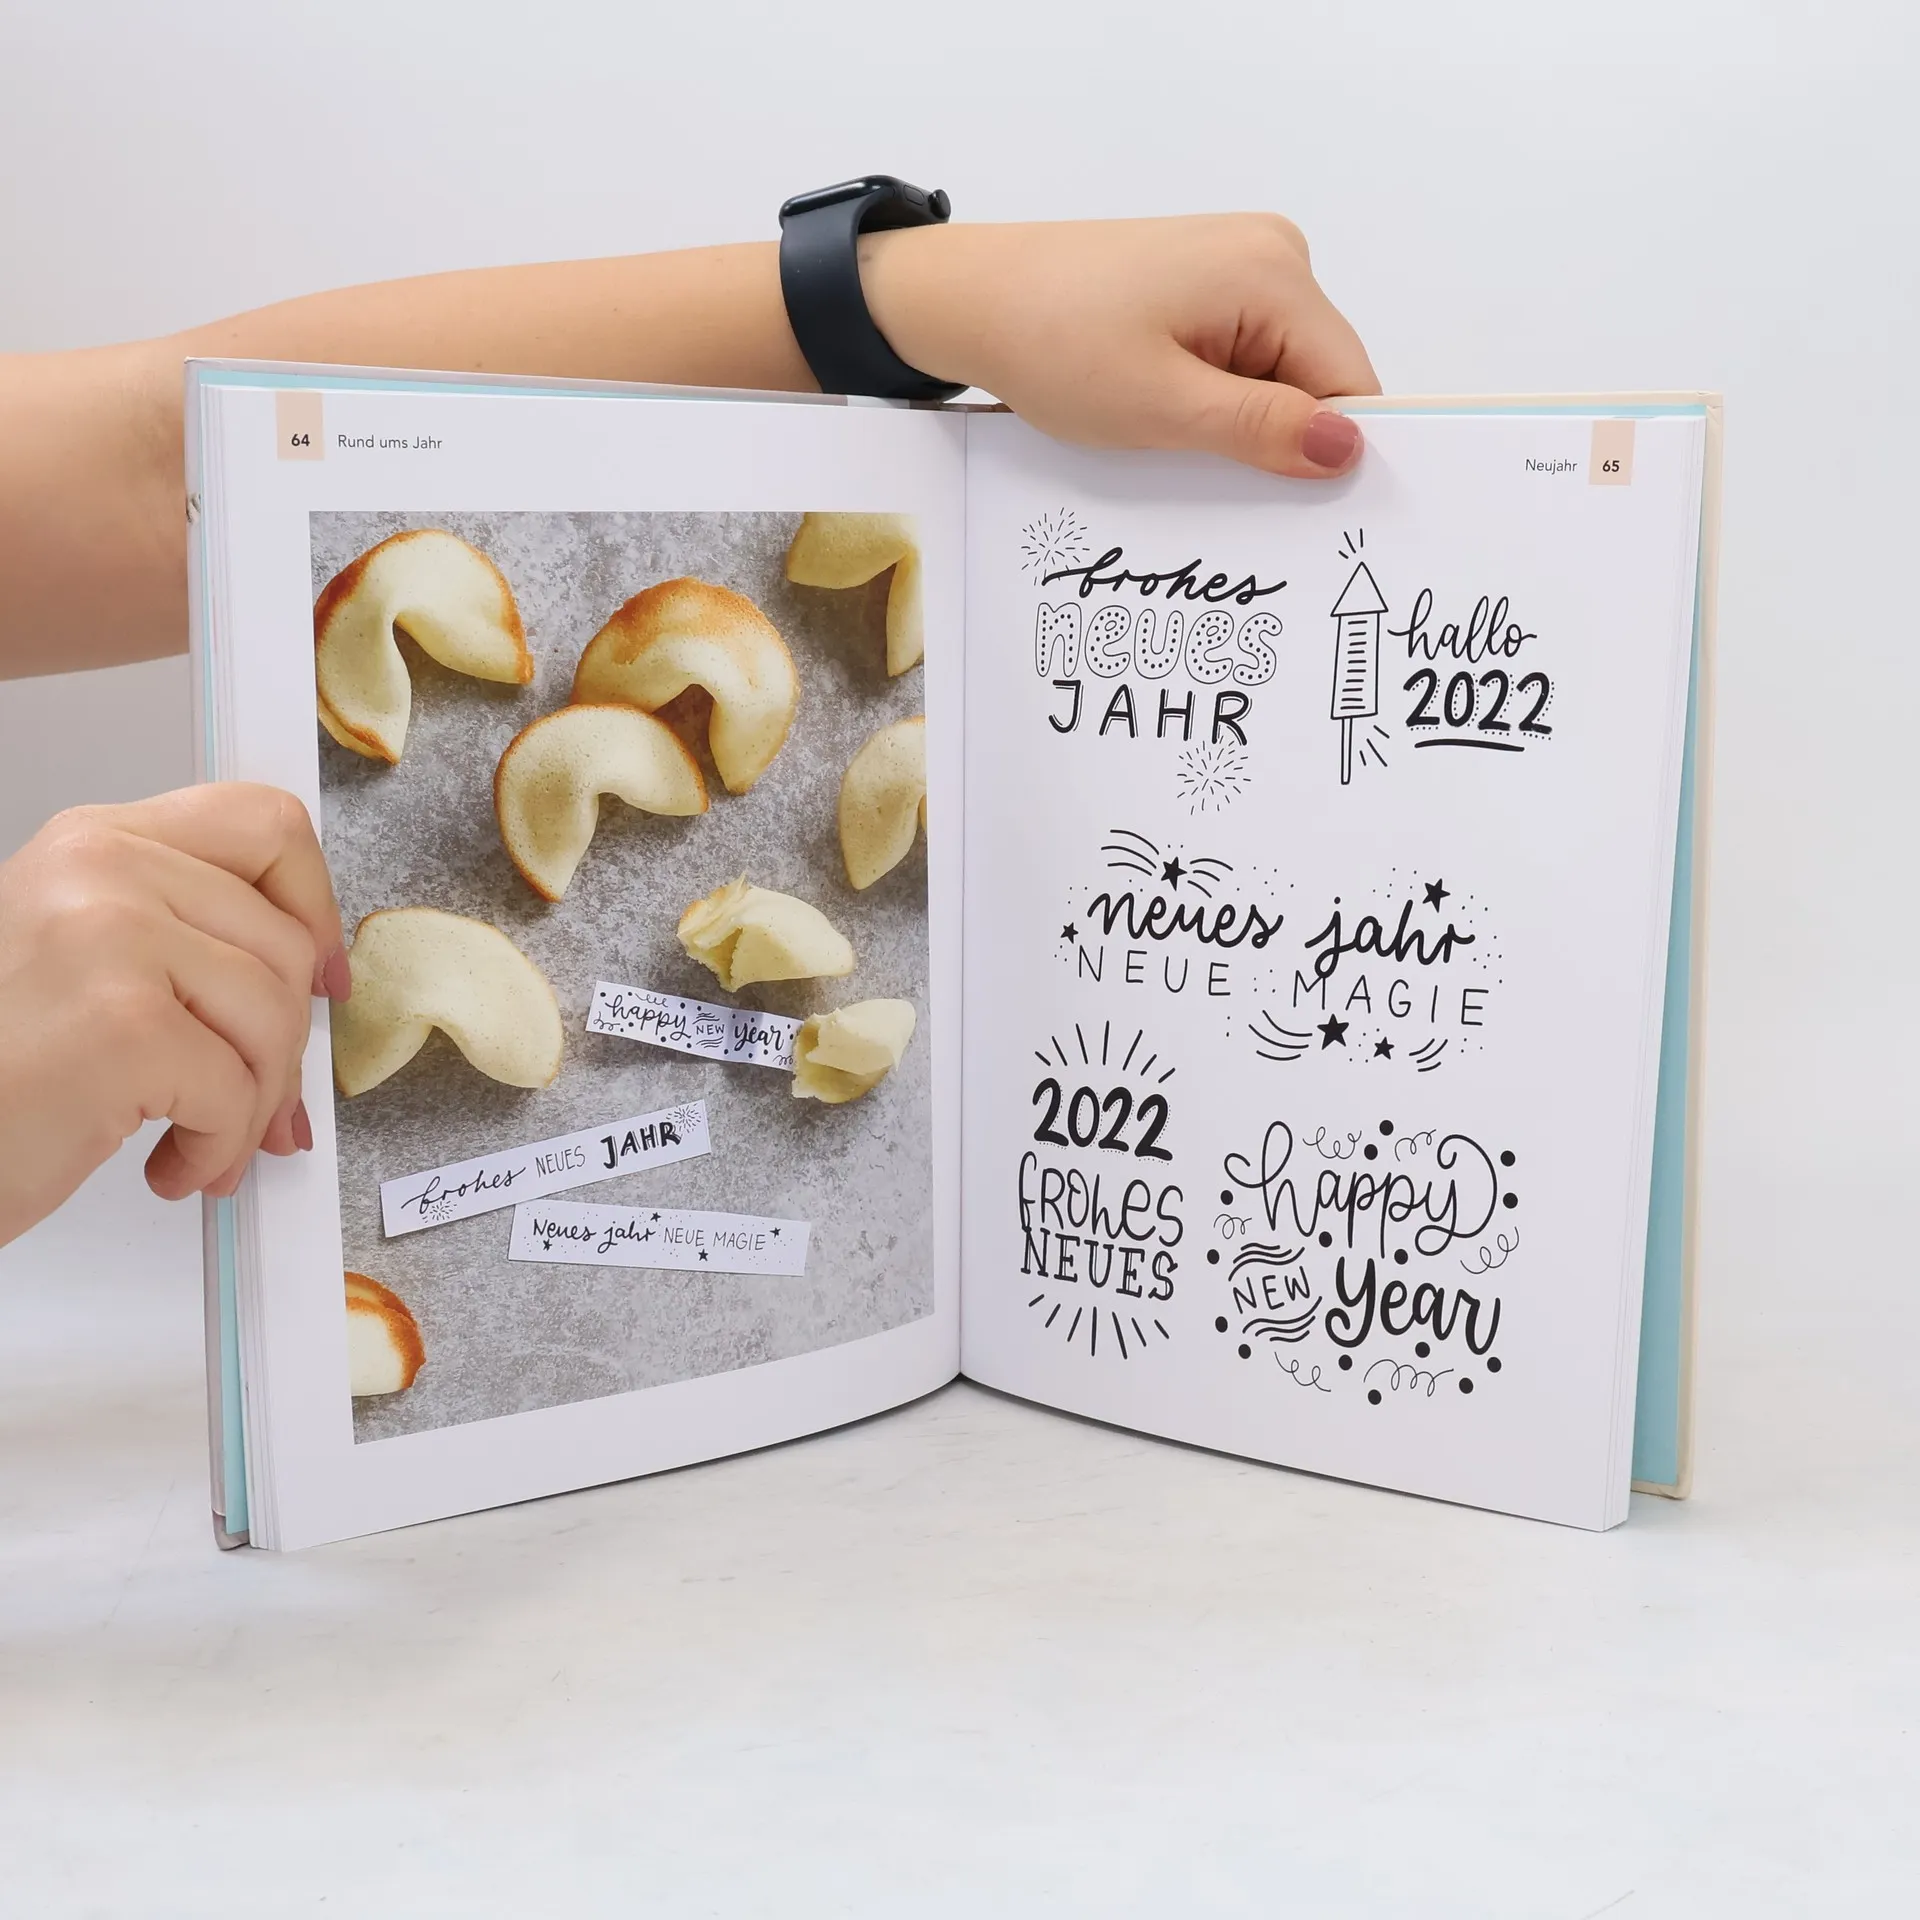 64 Rund ums Jahr
happy NEW year
frohes NEUES JAHR
Neues jahr NEUE MAGIE
Neujahr 65
frohes
neues
JAHR
hallo
2022
neues jahr
NEUE MAGIE
2022
FROHES
NEUES
happy
NEW year